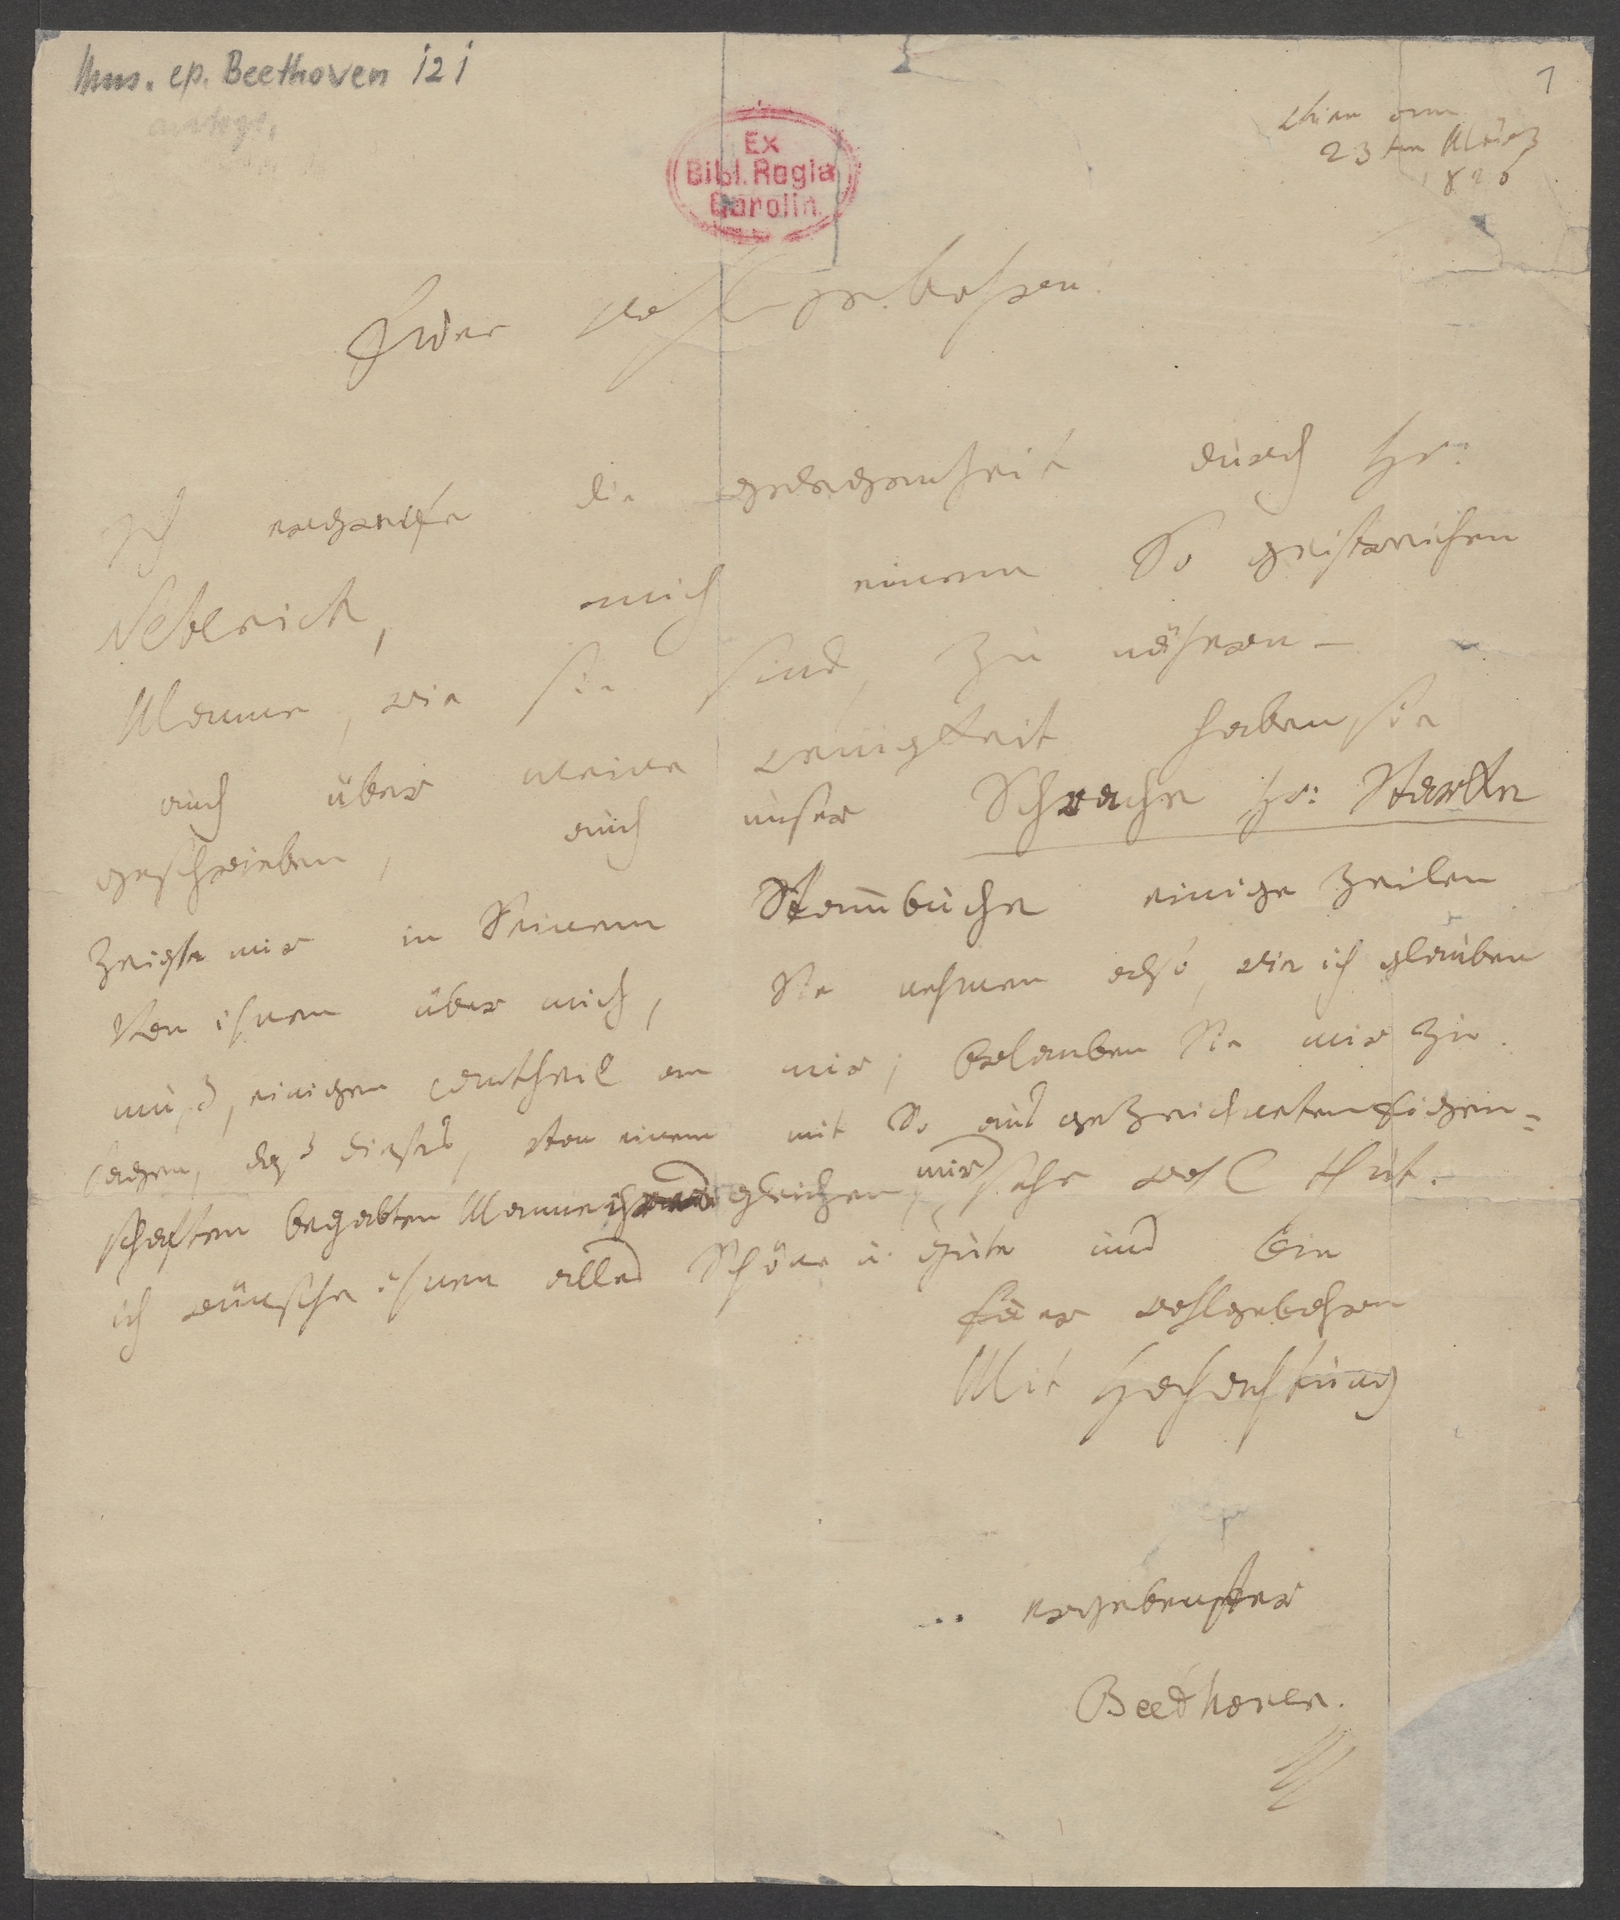 Mus. ep. Beethoven 121
1
Wien am
23ten März
1820
Ex
Bibl. Regia
Berolin.
Euer wohlgebohren!
Ich ergreife die gelegenheit durch Hr:
Neberich, mich einem So geistreichen
Manne, wie sie sind, zu nähern –
auch über meine wenigkeit haben sie
geschrieben, auch unser Schwache Hr: Starke
Zeigte mir in Seinem Stammbuche einige Zeilen
Von ihnen über mich, Sie nehmen also, wie ich glauben
muß, einigen Antheil an mir, Erlauben Sie mir zu
sagen, daß dieses, von einem mit So ausgezeichneten Eigen=
schaften begabten Manne ihres gleichen, mir sehr wohl thut.
ich wünsche ihnen alles Schöne u. Gute und bin
Euer wohlgebohren
Mit Hochachtung
ergebenster
Beethoven.